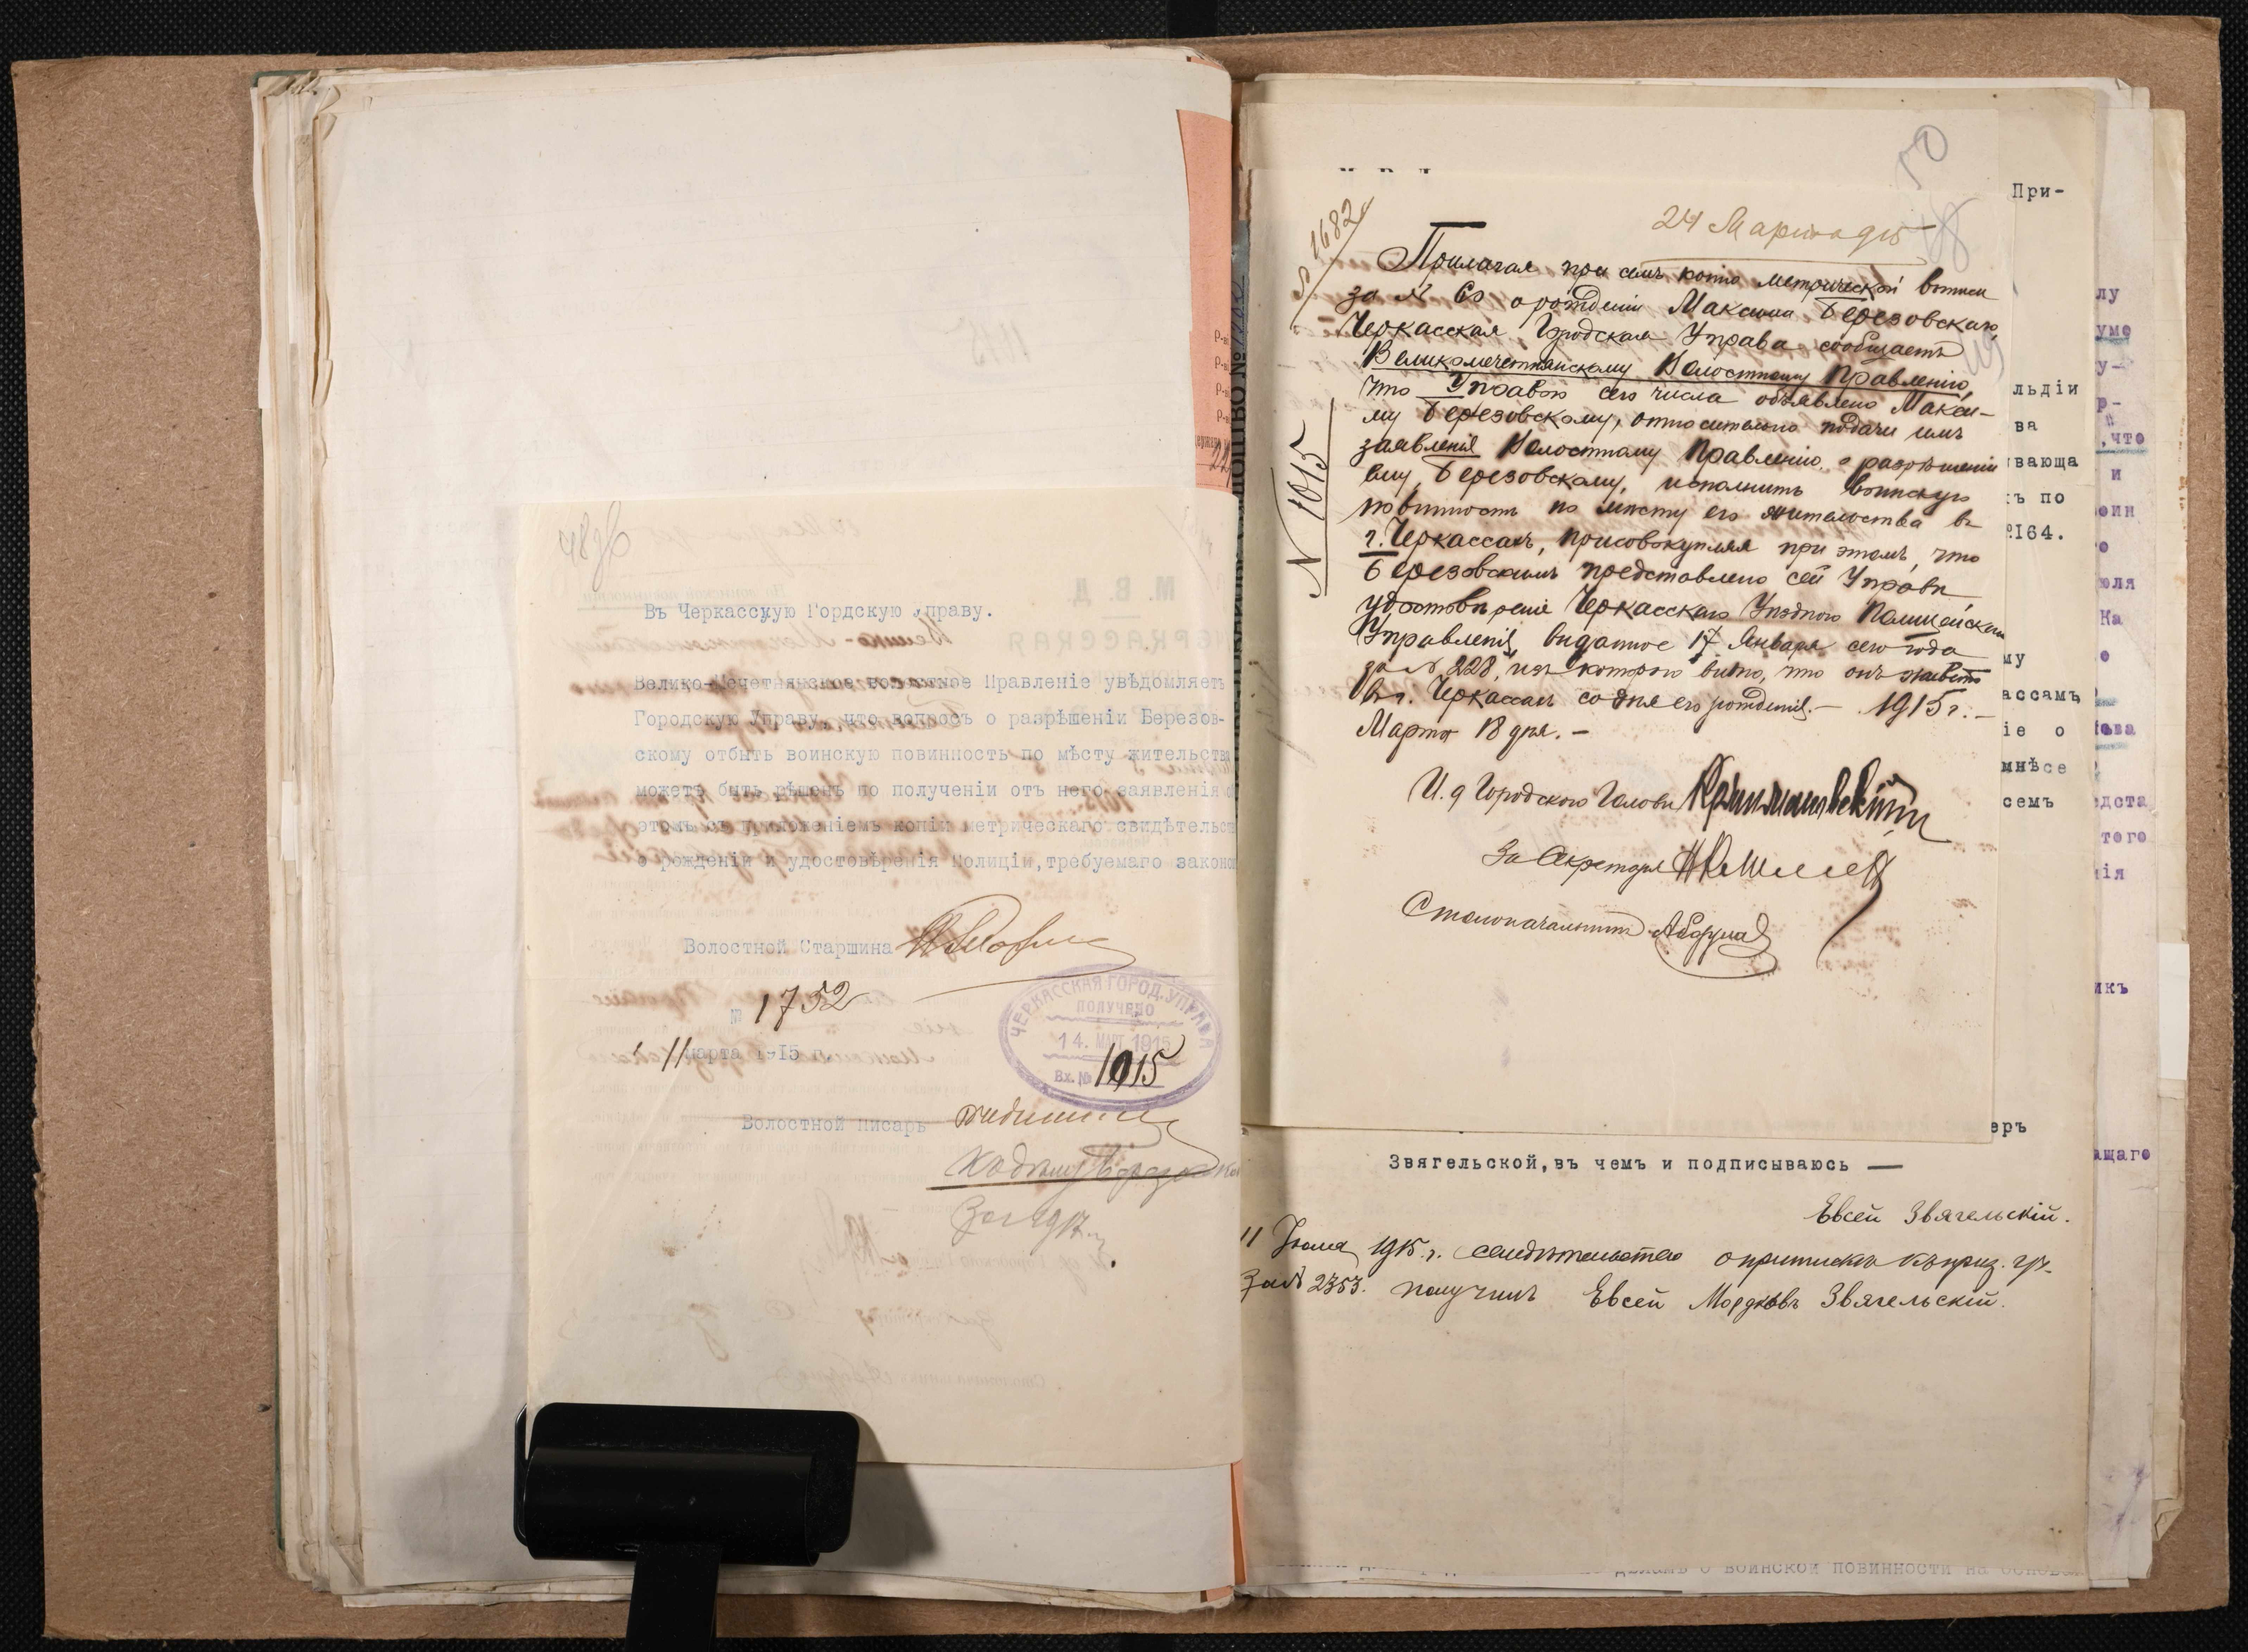 48 об
Въ Черкасскую Гордскую управу.
Велико-Мечетнянское волостное Правленіе увѣдомляетъ
Городскую Управу, что вопросъ о разрѣшеніи Березов-
скому отбыть воинскую повинность по мѣсту жительства
можетъ быть рѣшенъ по полученіи отъ него заявленія о
этомъ съ приложеніемъ копіи метрическаго свидѣтельст
о рожденіи и удостовѣренія Полиціи, требуемаго законо
Волостной Старшина
№ 1752
11 марта 1915 г.
ЧЕРКАССКАЯ ГОРОД. УПРАВА
ПОЛУЧЕНО
14. МАРТ 1915
Вх. № 1015
Волостной Писарь
50
24 Марта 915
№ 1682
№ 1015
Прилагая при семъ копію метрической выписи
за № 60 о рожденіи Максима Березовскаго,
Черкасская Городская Управа сообщаетъ
Великомечетнянскому Волостному Правленію,
что Управою сего числа объявлено Макси-
му Березовскому, относительно подачи имъ
заявленія Волостному Правленію о разрѣшеніи
ему, Березовскому, исполнить воинскую
повинность по мѣсту его жительства въ
г. Черкассахъ, присовокупляя при этомъ, что
Березовскимъ представлено сей Управѣ
удостовѣреніе Черкасскаго Уѣзднаго Полицейскаго
Управленія, выданное 17 Января сего года
за № 828, изъ котораго видно, что онъ живетъ
въ г. Черкассахъ со дня его рожденія. — 1915 г. —
Марта 18 дня. —
И. д. Городского Головы
За Секретаря
Столоначальникъ
При-
льдіи
ва
ивающа
ъ по
№164.
му
ассамъ
іе о
мнѣсе
семъ
еръ
лу
уме
у-
р-
,что
и
оин
о
юля
Ка
е
дста
того
нія
икъ
ащаго
Звягельской, въ чемъ и подписываюсь —
Евсей Звягельскій.
11 Іюля 1915 г. свидѣтельство о припискѣ къ приз. уч.
за № 2353. получилъ Евсей Мордковъ Звягельскій.
дѣламъ о воинской повинности на основан